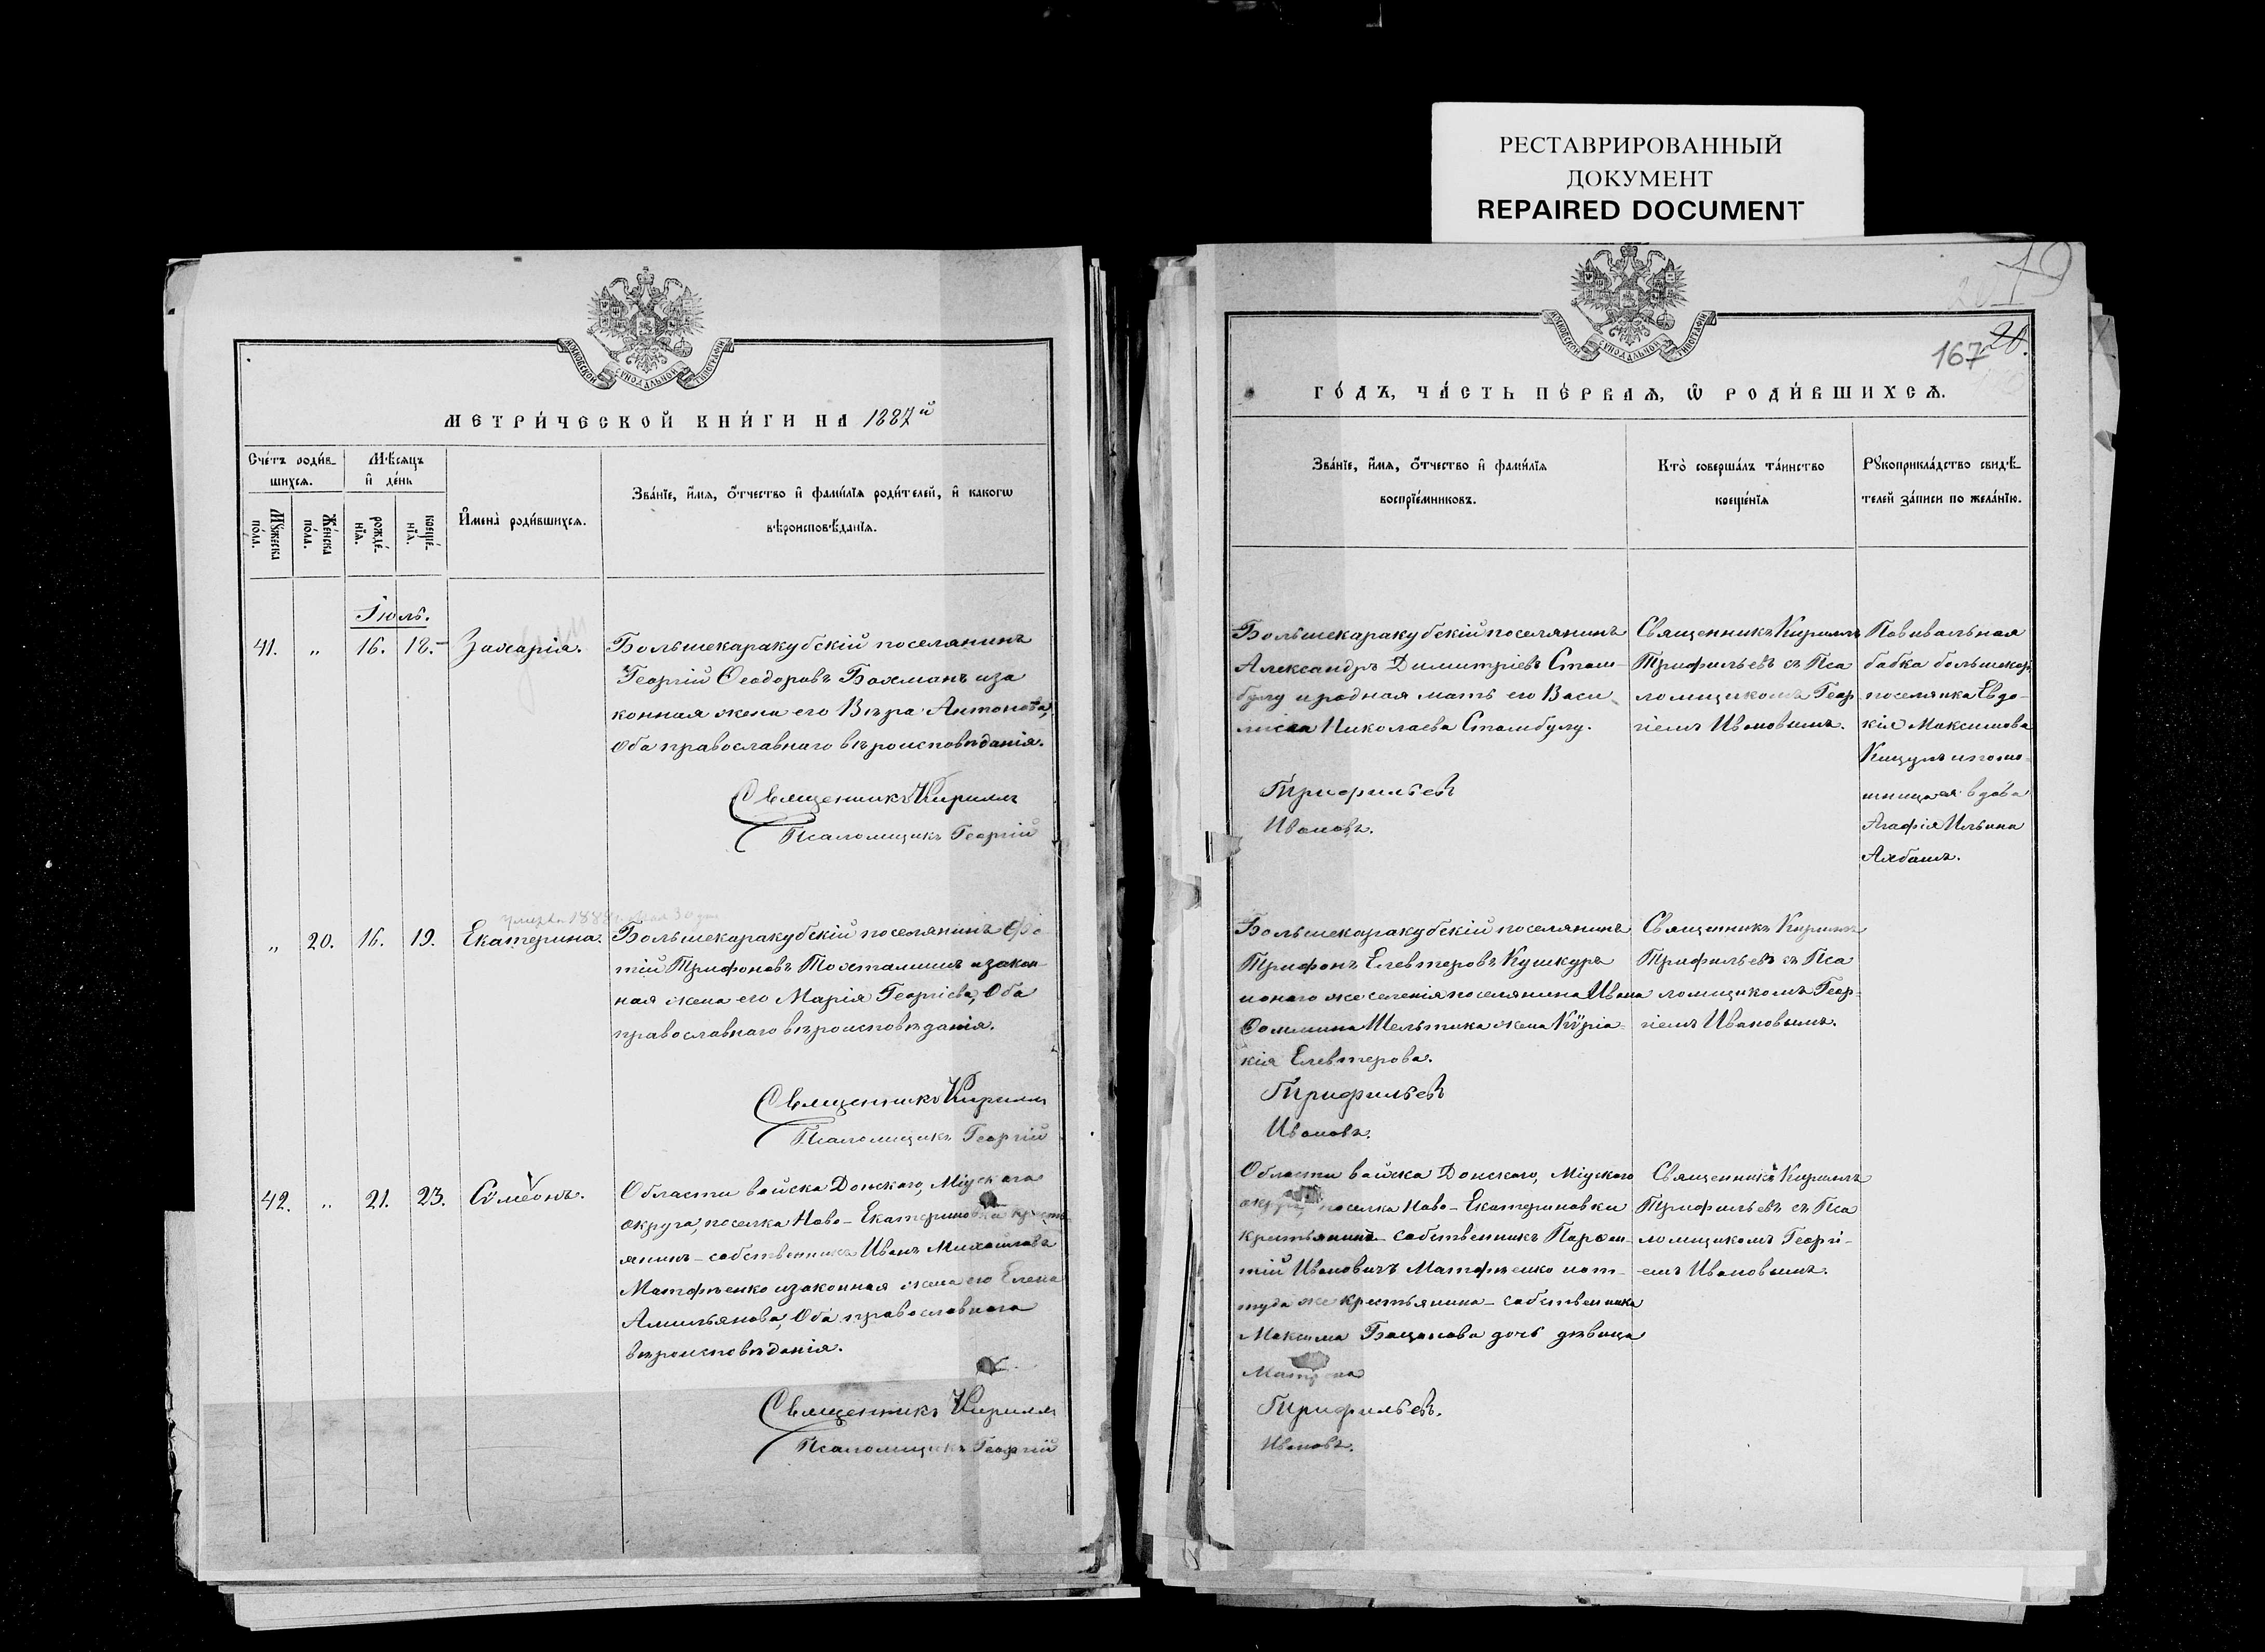 РЕСТАВРИРОВАННЫЙ
ДОКУМЕНТ
REPAIRED DOCUMENT
МОСКОВСКОЙ СѴНОДАЛЬНОЙ ТИПОГРАФІИ
МЕТРИ́ЧЕСКОЙ КНИ́ГИ НА 1887й
Сче́тъ роди́в-
шихсѧ.
Мѣ́сѧцъ
и҆ де́нь
Мꙋ́жеска
по́ла.
Же́нска
по́ла.
рожде́-
нїѧ.
креще́-
нїѧ.
И҆мена̀ роди́вшихсѧ.
Зва́нїе, и҆́мѧ, ѻ҆́тчество и҆ фами́лїѧ роди́телей, и҆ какогѡ
вѣроисповѣ́данїѧ.
Іюль.
41. „ 16. 18. Захарія.
Большекаракубскій поселянинъ
Георгій Ѳеодоровъ Бахманъ и за
конная жена его Вѣра Антонова,
Оба православнаго вѣроисповѣданія.
Священникъ Кириллъ
Псаломщикъ Георгій
„ 20. 16. 19. Екатерина.
Большекаракубскій поселянинъ
тій Трифоновъ Тохтамышъ и закон-
ная жена его Марія Георгіева, Оба
православнаго вѣроисповѣданія.
Священникъ Кириллъ
Псаломщикъ Георгій
42. „ 21. 23. Сѵмеонъ.
Области войска Донскаго, Міускаго
округа, поселка Ново-Екатериновка кресть
янинъ-собственникъ Иванъ Михайловъ
Матфѣенко и законная жена его Елена
Амильянова, Оба православнаго
вѣроисповѣданія.
Священникъ Кириллъ
Псаломщикъ Георгій
МОСКОВСКОЙ СѴНОДАЛЬНОЙ ТИПОГРАФІИ
19
20.
167
ГО́ДЪ, ЧА́СТЬ ПЕ́РВАѦ, Ѡ҆ РОДИ́ВШИХСѦ.
Зва́нїе, и҆́мѧ, ѻ҆́тчество и҆ фами́лїѧ
воспрїе́мниковъ.
Кто̀ соверша́лъ та́инство
креще́нїѧ
Рꙋкоприкла́дство свидѣ́-
телей за́писи по жела́нїю.
Большекаракубскій поселянинъ
Александръ Димитріевъ Стам-
булу и родная мать его Васи
лисса Николаева Стамбулу.
Трифильевъ
Ивановъ.
Священникъ Кириллъ
Трифильевъ съ Пса
ломщикомъ Геор-
гіемъ Ивановымъ.
Повивальная
бабка большекар.
поселянка Евдо-
кія Максимова
вдова
Агафія Ильина
Ахбашъ.
Большекаракубскій поселянинъ
Трифонъ Елевтеровъ Кушкуръ
и онаго же селенія поселянина Ивана
Фоминина Шельтика жена Кѵріа-
кія Елевтерова.
Трифильевъ
Ивановъ.
Священникъ Кириллъ
Трифильевъ съ Пса
ломщикомъ Геор-
гіемъ Ивановымъ.
Области войска Донскаго, Міускаго
округа, поселка Ново-Екатериновки
крестьянинъ-собственникъ Парѳен-
тій Ивановичъ Матфѣенко и от-
туда же крестьянина-собственника
Максима Бацанова дочь дѣвица
Матрона
Трифильевъ.
Ивановъ.
Священникъ Кириллъ
Трифильевъ съ Пса
ломщикомъ Георгі-
емъ Ивановымъ.